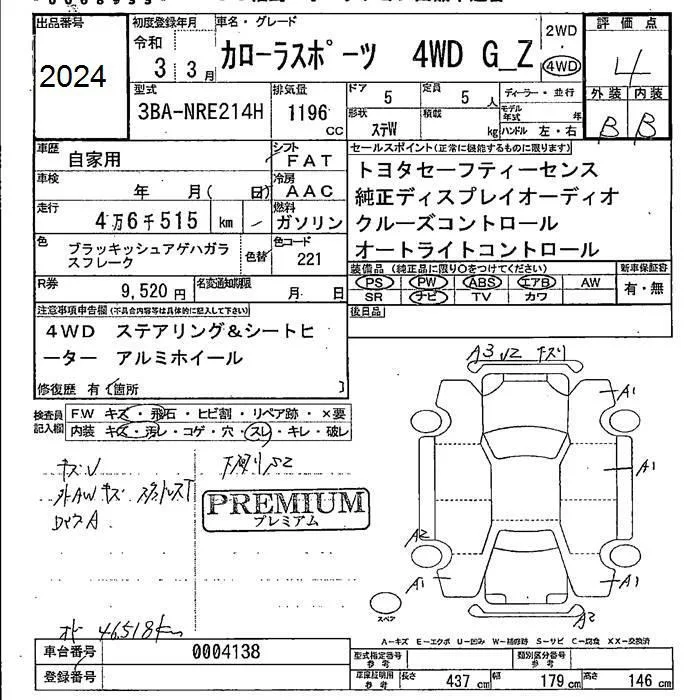 出品番号 初度登録年月 車名・グレード 2WD 評価点
2024 令和 3年 3月 カローラスポーツ 4WD G_Z 4WD 4
型式 排気量 ドア 定員 ディーラー・並行 外装 内装
3BA-NRE214H 1196 CC 5 5人 モデル年式 年 B B
形状 ステW 積載 kg ハンドル 左・右
車歴 自家用 シフト FAT セールスポイント(正常に機能するものに限ります)
車検 年 月( 日) 冷房 AAC トヨタセーフティーセンス
走行 4万6千515 km 燃料 ガソリン 純正ディスプレイオーディオ
クルーズコントロール
色 ブラッキッシュアゲハガラスフレーク 色替 色コード 221 オートライトコントロール
R券 9,520円 名変通知期限 月 日 装備品(純正品に限り○をつけてください) 新車保証書
PS PW ABS エアB AW 有・無
SR ナビ TV カワ
注意事項申告欄(不具合内容等は具体的に記入して下さい) 後日品
4WD ステアリング&シートヒ
ーター アルミホイール
修復歴 有〔箇所 〕
検査員記入欄 F.W キズ・飛石・ヒビ割・リペア跡・×要
内装 キズ・汚レ・コゲ・穴・スレ・キレ・破レ
A3 U2 キズリ
A1
A1
A2
A1 A1
A2
キズU 下廻りS2
外AWキズ
PREMIUM
プレミアム
スペア
46518km
A-キズ E-エクボ U-凹み W-補修跡 S-サビ C-腐食 XX-交換済
車台番号 0004138 型式指定番号 参考 類別区分番号 参考
登録番号 車庫証明用 参考 長さ 437cm 幅 179cm 高さ 146cm